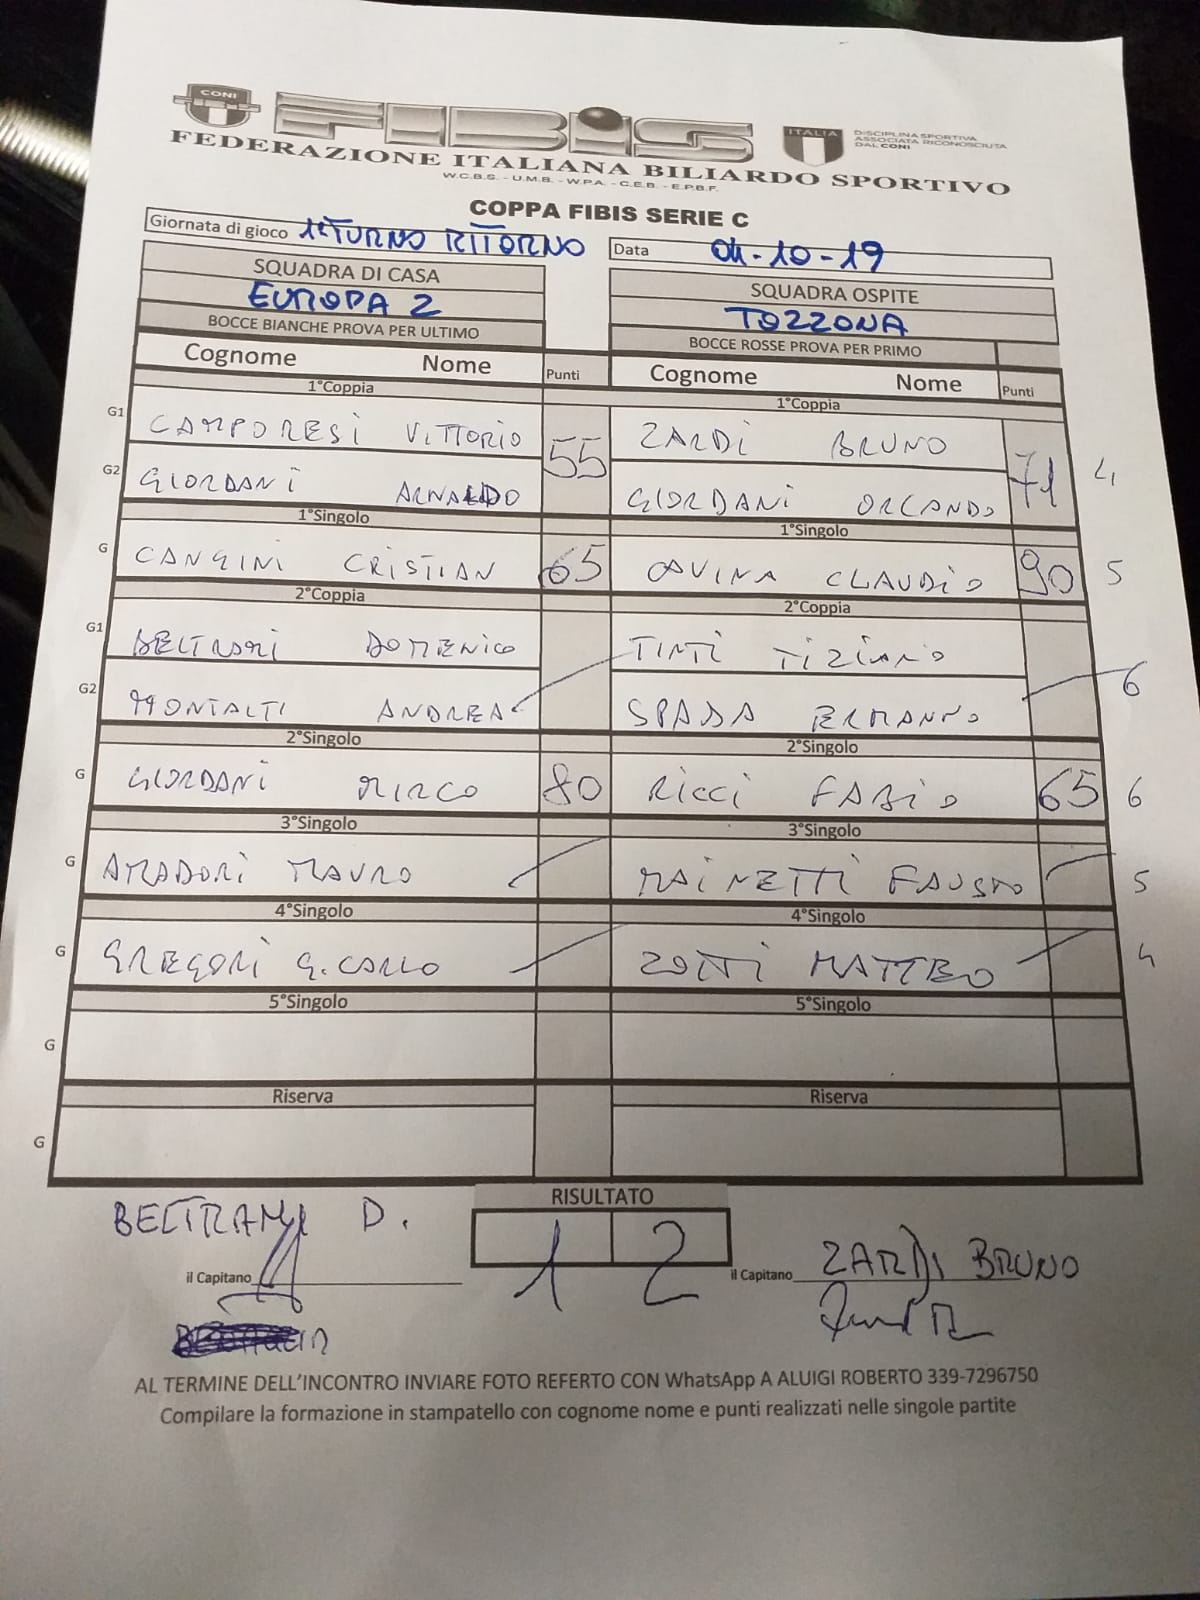 CONI
FIBiS
ITALIA
DISCIPLINA SPORTIVA
ASSOCIATA RICONOSCIUTA
DAL CONI
FEDERAZIONE ITALIANA BILIARDO SPORTIVO
W.C.B.S. - U.M.B. - W.P.A. - C.E.B. - E.P.B.F.
COPPA FIBIS SERIE C
Giornata di gioco 1° TURNO RITORNO Data 04-10-19
SQUADRA DI CASA SQUADRA OSPITE
EUROPA 2 TOZZONA
BOCCE BIANCHE PROVA PER ULTIMO BOCCE ROSSE PROVA PER PRIMO
Cognome Nome Punti Cognome Nome Punti
1°Coppia 1°Coppia
G1 CAMPORESI VITTORIO 55 ZARDI BRUNO 71 4
G2 GIORDANI ARNALDO GIORDANI ORLANDO
1°Singolo 1°Singolo
G CANGINI CRISTIAN 65 AVINA CLAUDIO 90 5
2°Coppia 2°Coppia
G1 BELTRAMI DOMENICO TINTI TIZIANO
G2 MONTALTI ANDREA SPADA ERMANNO 6
2°Singolo 2°Singolo
G GIORDANI MIRCO 80 RICCI FABIO 65 6
3°Singolo 3°Singolo
G AMADORI MAURO MAINETTI FAUSTO 5
4°Singolo 4°Singolo
G GREGORI G.CARLO ZOTTI MATTEO 4
5°Singolo 5°Singolo
G
Riserva Riserva
G
RISULTATO
BELTRAMI D. 1 2 ZARDI BRUNO
il Capitano il Capitano
AL TERMINE DELL'INCONTRO INVIARE FOTO REFERTO CON WhatsApp A ALUIGI ROBERTO 339-7296750
Compilare la formazione in stampatello con cognome nome e punti realizzati nelle singole partite